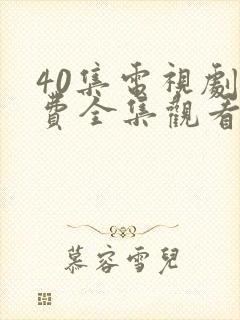 40集電視劇
費全集觀看
慕容雪兒